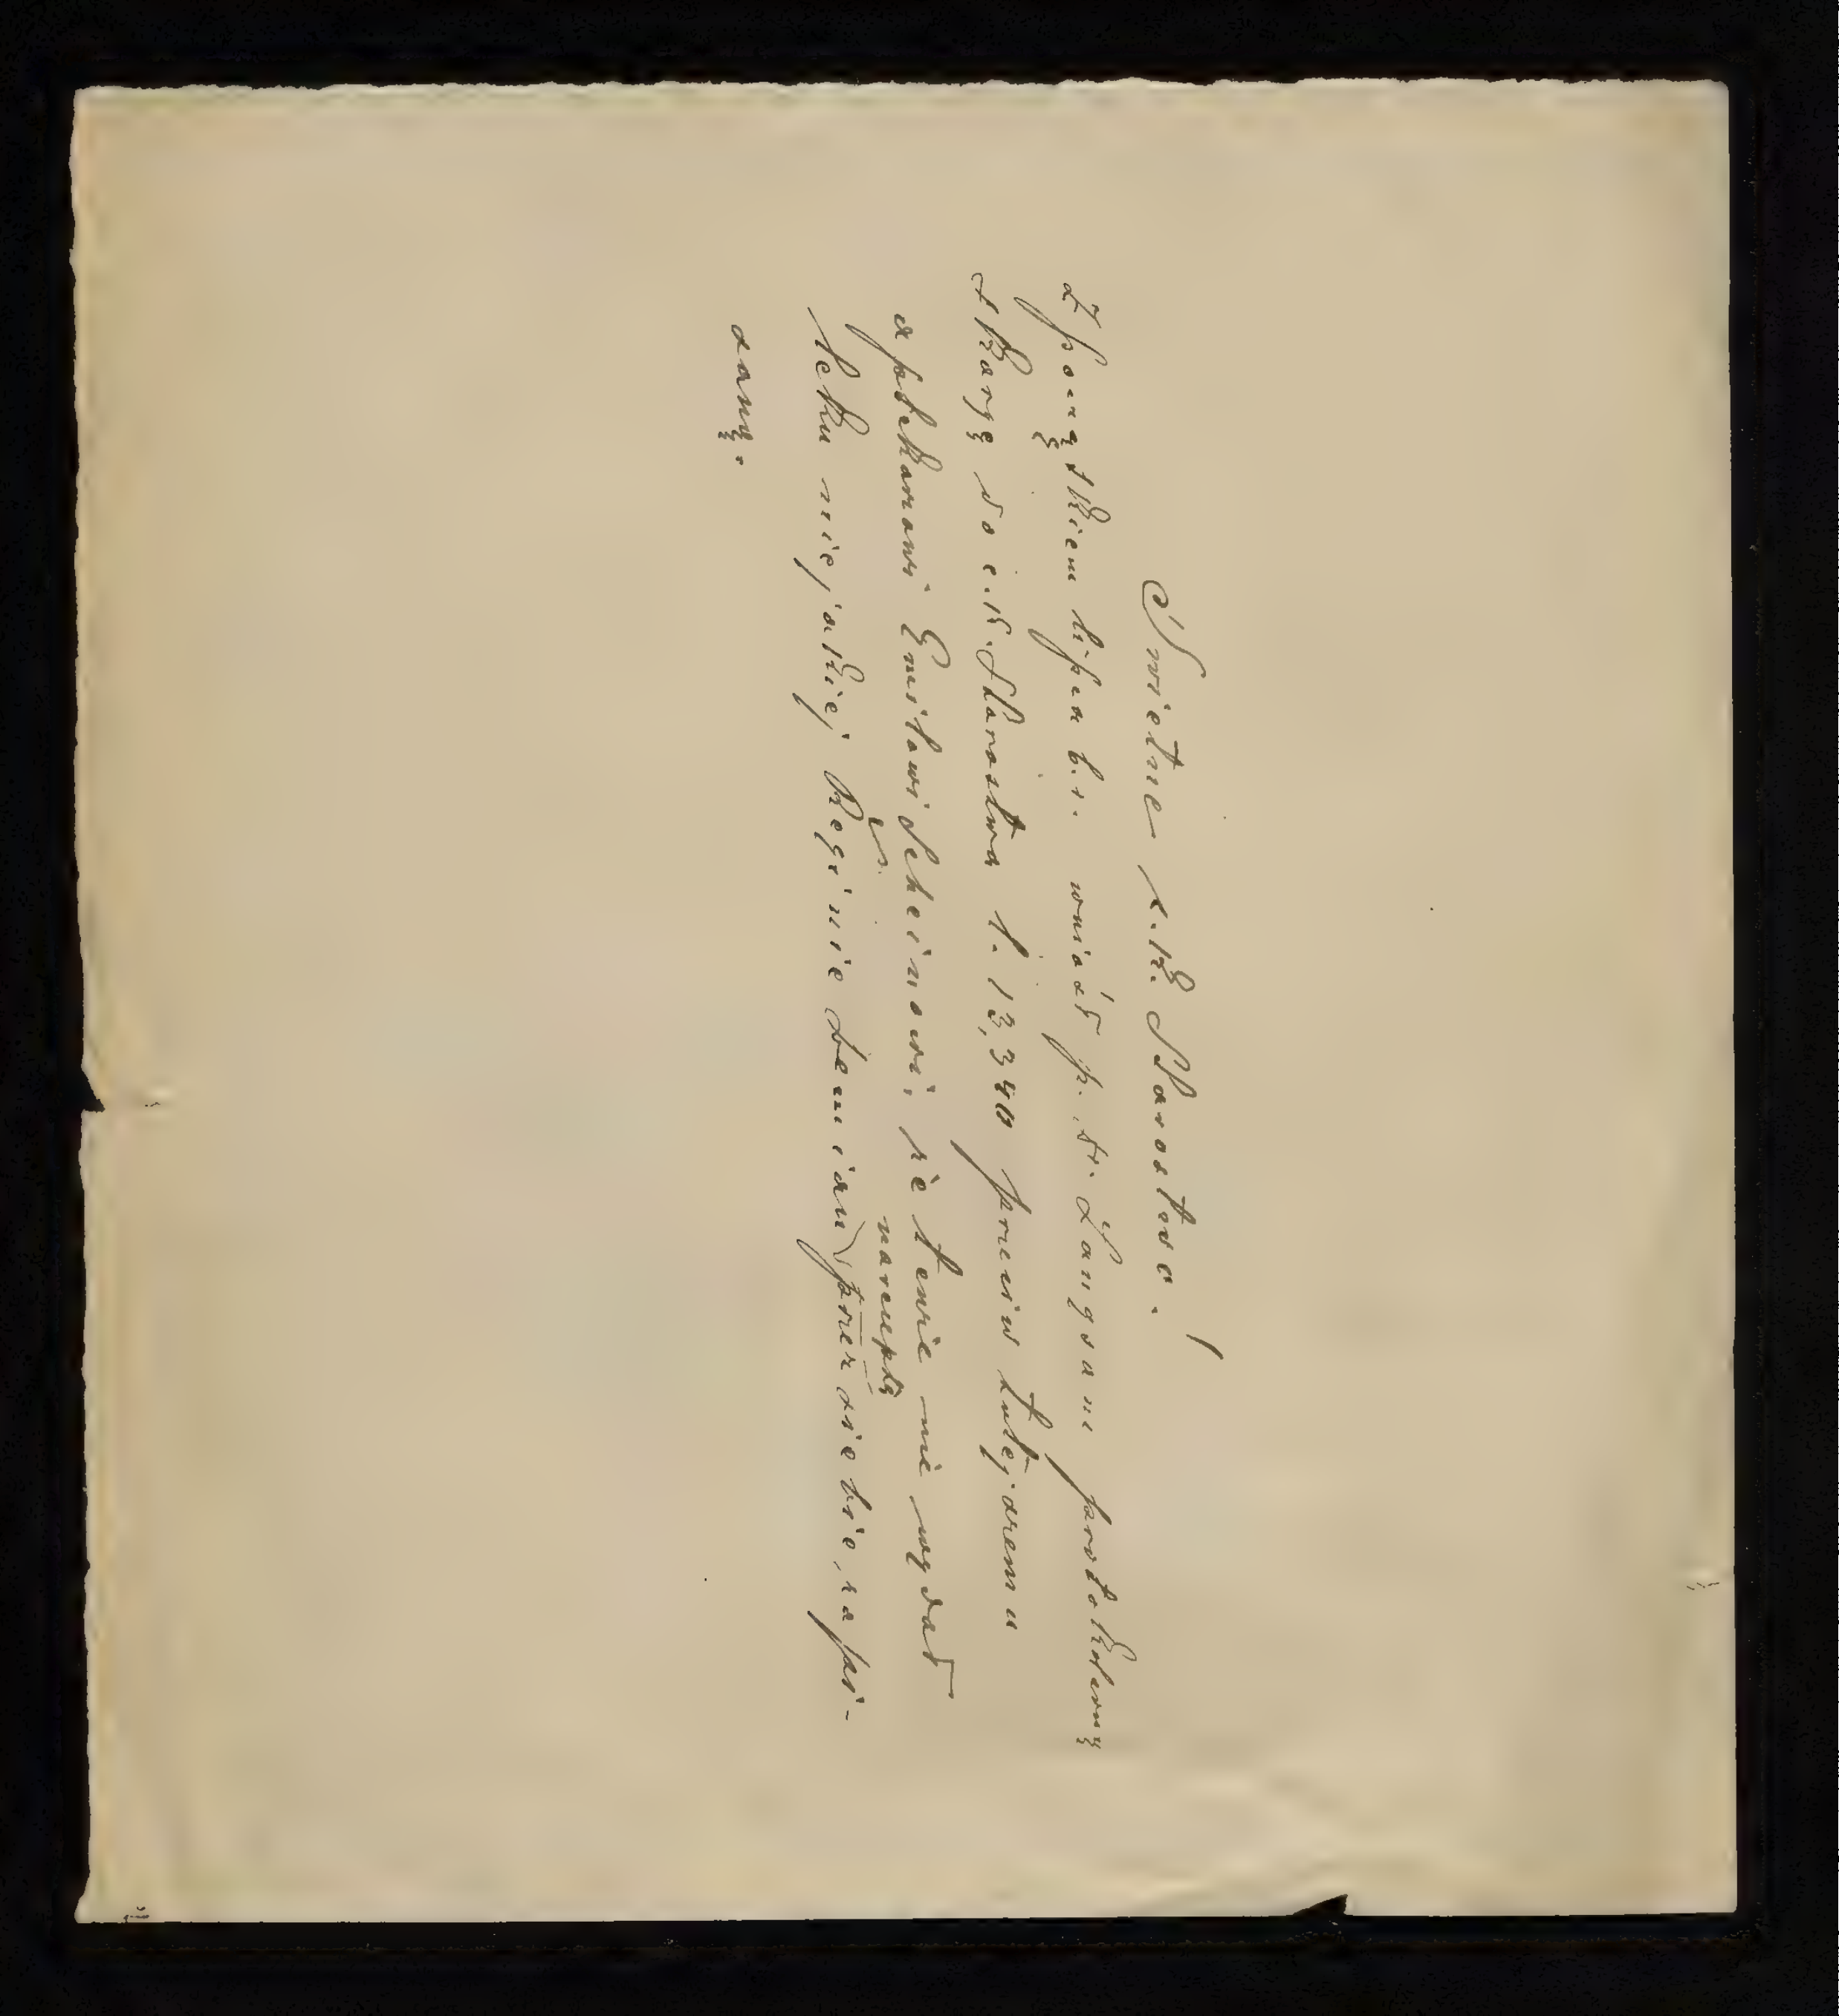 Świetne c.k. Starostwo!
Z początkiem lipca b.r. wniósł p. dr. Langsam protokolarną
skargę do c.k. Starostwa l. 13,340 przeciw tutejszemu
aptekarowi Emilowi Scheinowi, że tenże nie wydał
leku niejakiej Reginie Demian przez siebie, zapi-
receptę
sany.